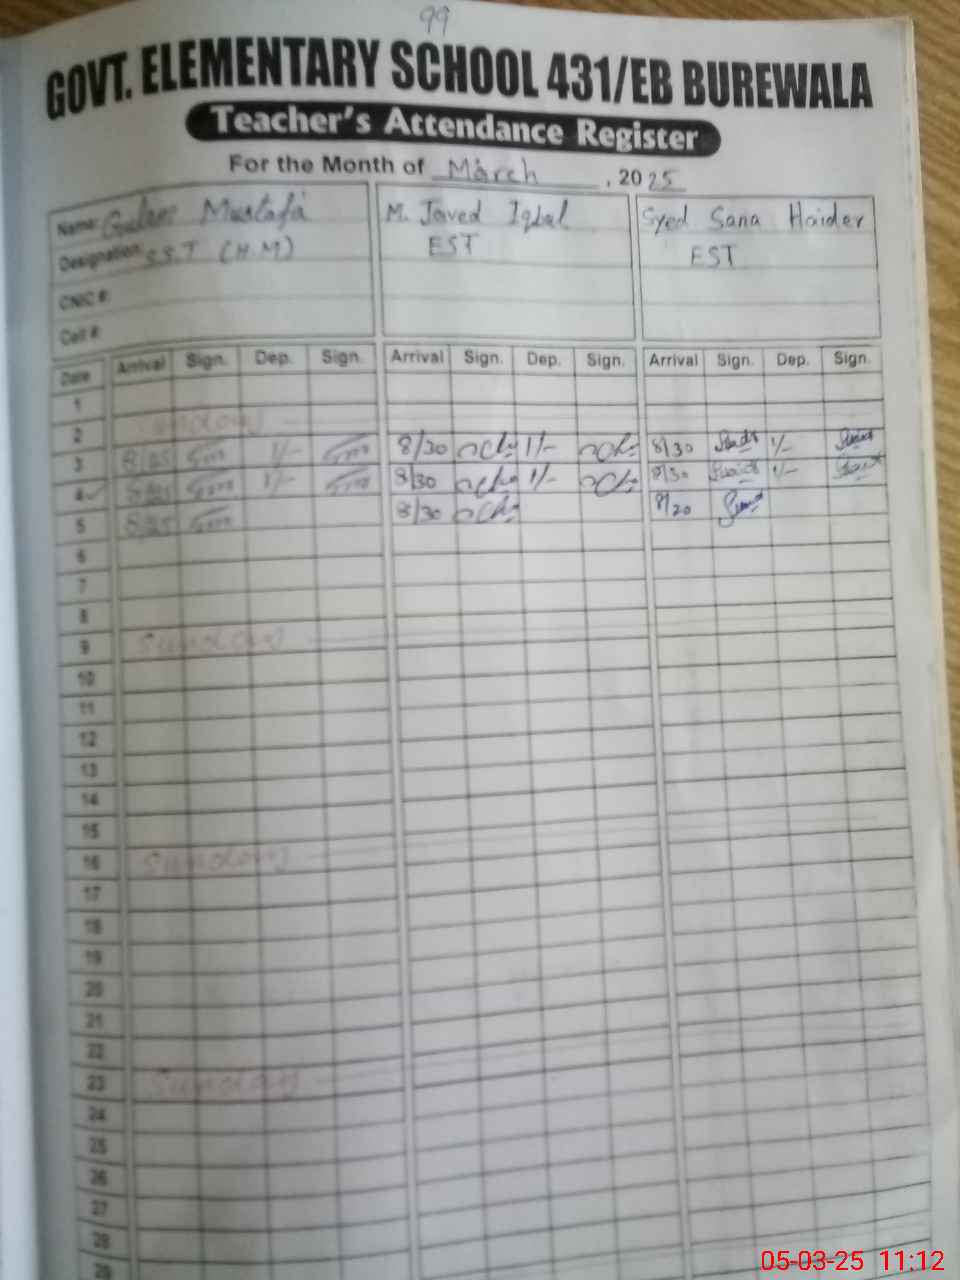 99
GOVT. ELEMENTARY SCHOOL 431/EB BUREWALA
Teacher's Attendance Register
For the Month of March, 2025
Name: Gulam Mustafa M. Javed Iqbal Syed Sana Haider
Designation: S.S.T (H.M) EST EST
CNIC #:
Cell #:
Date Arrival Sign. Dep. Sign. Arrival Sign. Dep. Sign. Arrival Sign. Dep. Sign.
1
2 Sunday
3 8/25 1/- 8/30 1/- 8/30 1/-
4 1/- 8/30 1/- 8/30 1/-
5 8/25 8/30 8/20
6
7
8
9 Sunday
10
11
12
13
14
15
16 Sunday
17
18
19
20
21
22
23 Sunday
24
25
26
27
28
29
05-03-25 11:12